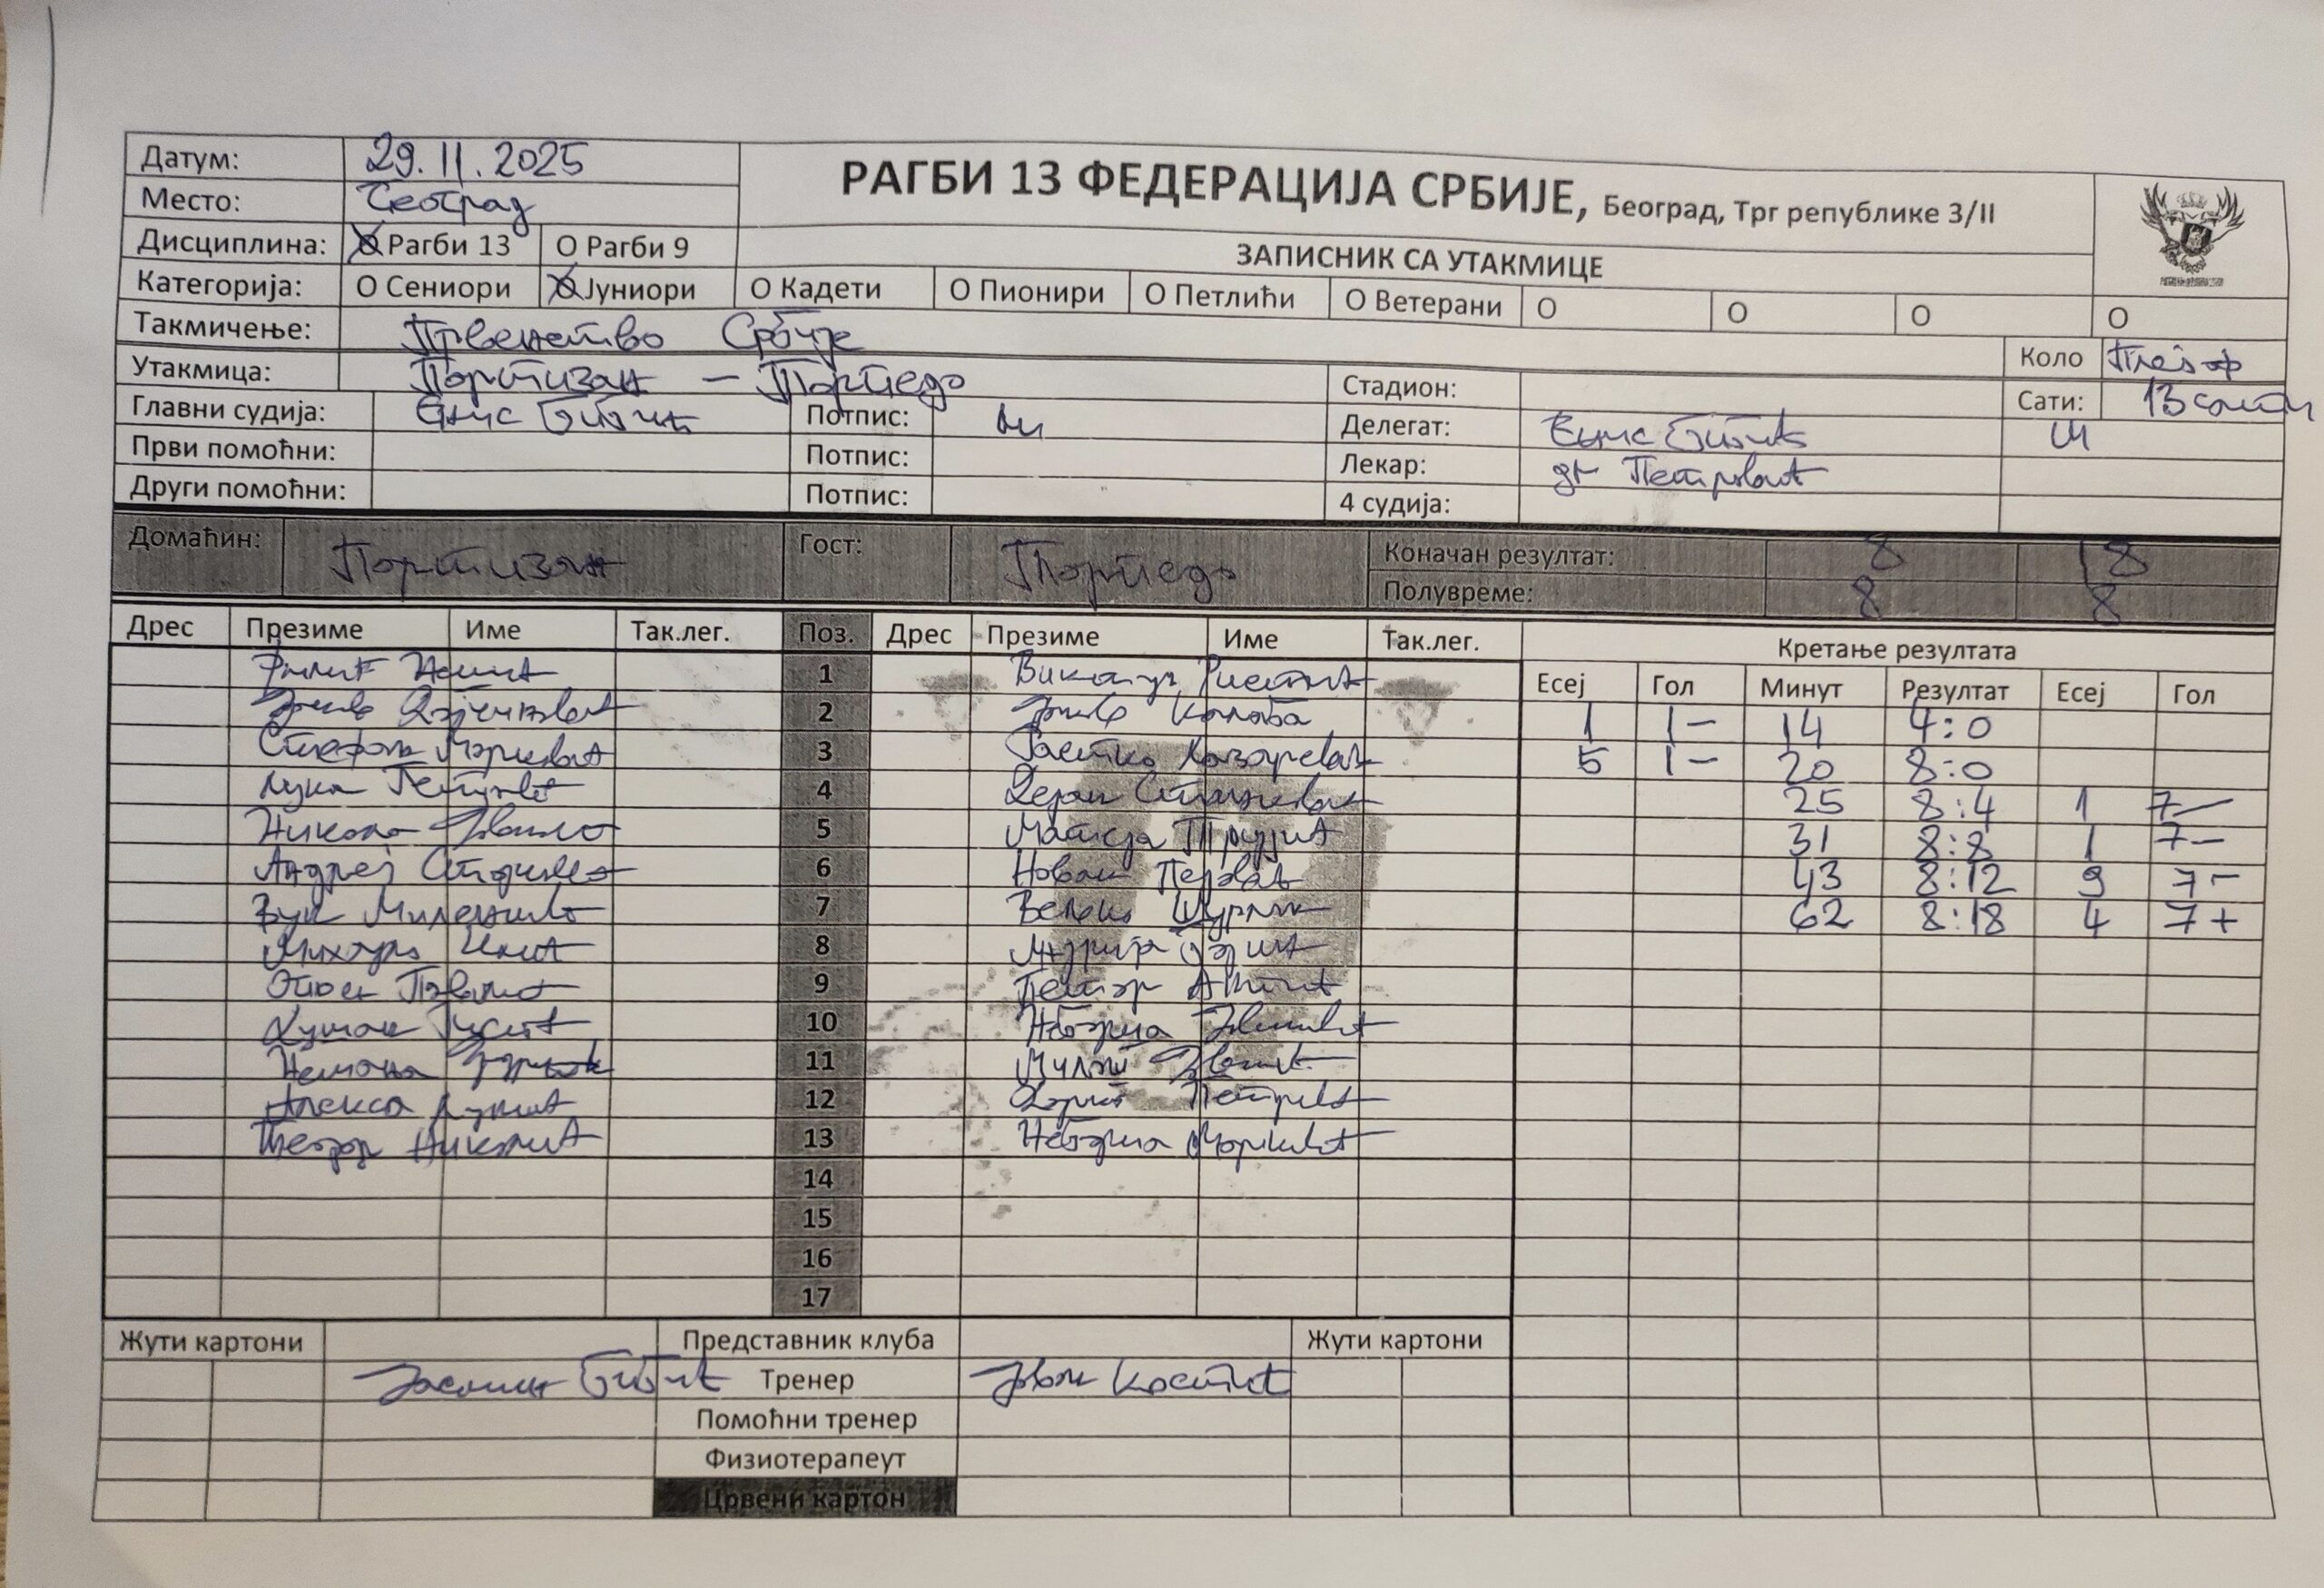 Датум: 29.11.2025
РАГБИ 13 ФЕДЕРАЦИЈА СРБИЈЕ, Београд, Трг републике 3/II
Место: Београд
Дисциплина: О Рагби 13 О Рагби 9
ЗАПИСНИК СА УТАКМИЦЕ
Категорија: О Сениори О Јуниори О Кадети О Пионири О Петлићи О Ветерани О О О О
Такмичење: Првенство Србије
Коло Плеј оф
Утакмица: Партизан – Торпедо
Стадион:
Сати: 13 сати
Главни судија: Енис Бибић Потпис:
Делегат: Енис Бибић
Први помоћни: Потпис:
Лекар: др Петровић
Други помоћни: Потпис:
4 судија:
Домаћин: Партизан Гост: Торпедо
Коначан резултат: 8 18
Полувреме: 8 8
Дрес Презиме Име Так.лег. Поз. Дрес Презиме Име Так.лег.
Кретање резултата
Есеј Гол Минут Резултат Есеј Гол
Филип Нешић 1 Ристић
1 1 – 14 4:0
2 Калаба
5 1 – 20 8:0
Стефан Марковић 3 Растко Лазаревић
25 8:4 1 7 –
Лука Петровић 4 Дејан Станковић
31 8:8 1 7 –
Никола 5 Матеја
43 8:12 9 7 –
Андреј 6 Новак
62 8:18 4 7 +
Вук Миленковић 7 Вељко
Михајло Илић 8 Андрија
Павловић 9 Петар Антић
Душан 10 Небојша
Немања 11 Милош
Алекса 12 Петровић
Теодор Николић 13 Небојша Марковић
14
15
16
17
Жути картони Представник клуба Жути картони
Јасмин Бибић Тренер Јован Костић
Помоћни тренер
Физиотерапеут
Црвени картон